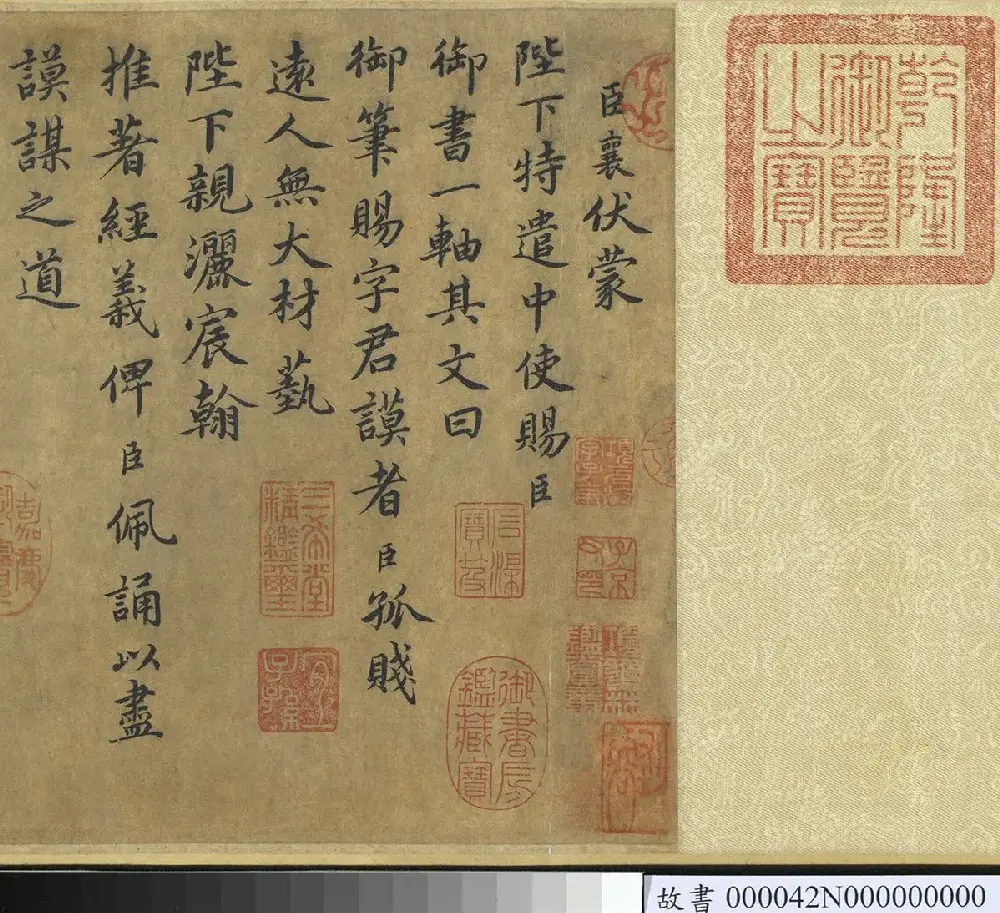 乾隆
御覽
之寶
臣襄伏蒙
陛下特遣中使賜臣
御書一軸其文曰
御筆賜字君謨者臣孤賤
遠人無大材藝
陛下親灑宸翰
推著經義俾臣佩誦以盡
謨謀之道
御書房
鑑藏寶
三希堂
精鑑璽
宜
子孫
嘉慶
故書 000042N000000000